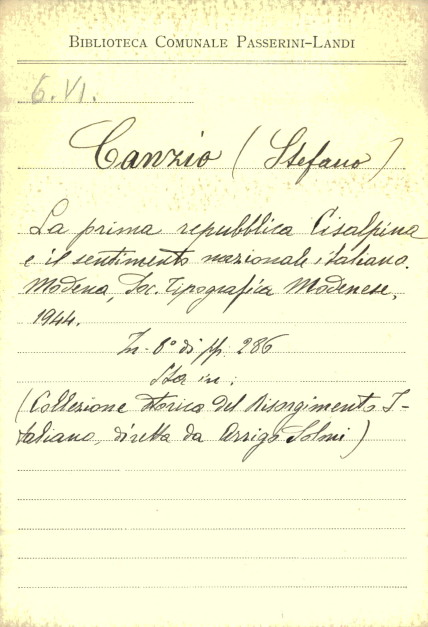 BIBLIOTECA COMUNALE PASSERINI-LANDI
6. VI.
Canzio (Stefano)
La prima repubblica Cisalpina
e il sentimento nazionale italiano.
Modena, Soc. Tipografica Modenese,
1944.
In-8° di pp. 286
Sta in:
(Collezione storica del Risorgimento I-
taliano, diretta da Arrigo Solmi)